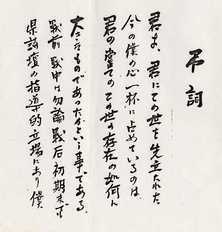 弔詞
君よ、君にこの世を先立たれた
今の僕の心一杯に占めているのは
君の嘗てのこの世の存在の如何に
大きなものであったかという事である
戦前戦中は勿論戦后初期まで
県詩壇の指導的立場にあり僕